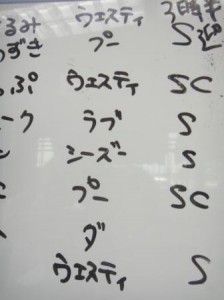 るみ ウェスティ 3時半
ずき プー S
っぷ ウェスティ SC
ーク ラブ S
シーズー S
プー SC
ダ
ウェスティ S